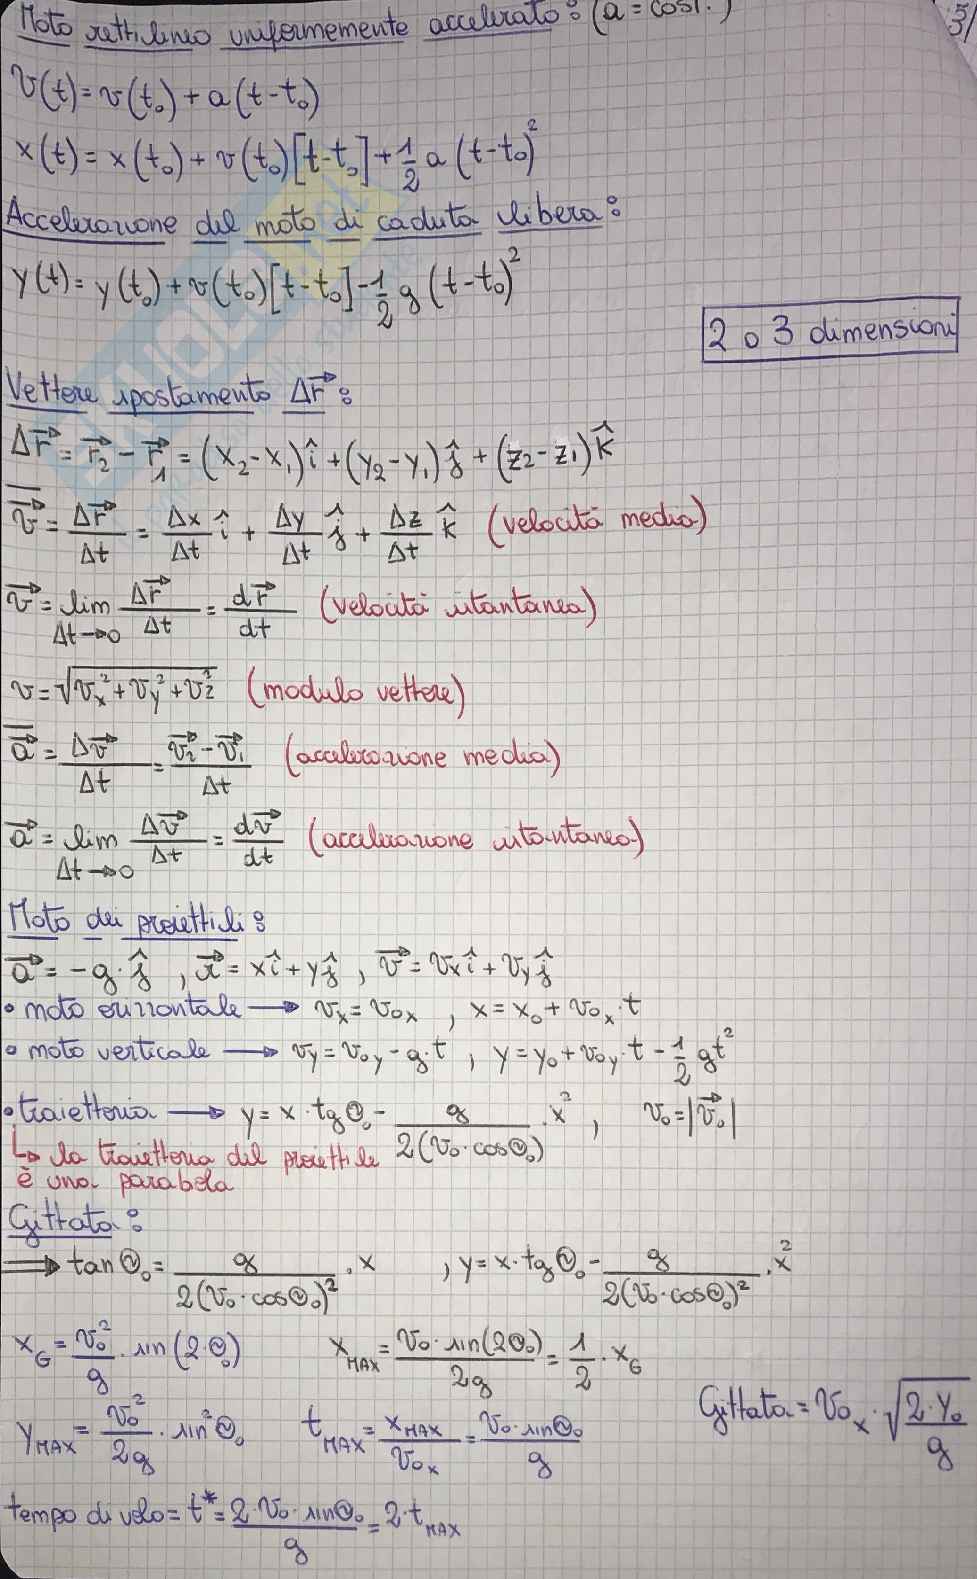 Moto rettilineo uniformemente accelerato: (a = cost.)
v(t) = v(t₀) + a(t-t₀)
x(t) = x(t₀) + v(t₀)[t-t₀] + 1/2 a (t-t₀)²
Accelerazione del moto di caduta libera:
y(t) = y(t₀) + v(t₀)[t-t₀] - 1/2 g (t-t₀)²
2 o 3 dimensioni
Vettore spostamento Δr⃗:
Δr⃗ = r⃗₂ - r⃗₁ = (x₂-x₁)î + (y₂-y₁)ĵ + (z₂-z₁)k̂
v̅⃗ = Δr⃗/Δt = Δx/Δt î + Δy/Δt ĵ + Δz/Δt k̂ (velocità media)
v⃗ = lim Δt→0 Δr⃗/Δt = dr⃗/dt (velocità istantanea)
v = √(vₓ² + v_y² + v_z²) (modulo vettore)
a̅⃗ = Δv⃗/Δt = (v⃗₂ - v⃗₁)/Δt (accelerazione media)
a⃗ = lim Δt→0 Δv⃗/Δt = dv⃗/dt (accelerazione istantanea)
Moto dei proiettili:
a⃗ = -g·ĵ , r⃗ = xî + yĵ , v⃗ = vₓî + v_yĵ
• moto orizzontale → vₓ = v₀ₓ , x = x₀ + v₀ₓ·t
• moto verticale → v_y = v₀_y - g·t , y = y₀ + v₀_y·t - 1/2 gt²
• traiettoria → y = x·tgθ₀ - g/(2(v₀·cosθ₀)) · x² , v₀ = |v⃗₀|
↳ la traiettoria del proiettile
è una parabola
Gittata:
⇒ tanθ₀ = g/(2(v₀·cosθ₀)²) · x , y = x·tgθ₀ - g/(2(v₀·cosθ₀)²) · x²
x_G = v₀²/g · sin(2·θ₀) x_MAX = v₀·sin(2θ₀)/2g = 1/2 · x_G
y_MAX = v₀²/2g · sin²θ₀ t_MAX = x_MAX/v₀ₓ = v₀·sinθ₀/g Gittata = v₀ₓ · √(2·y₀/g)
tempo di volo = t* = 2·v₀·sinθ₀/g = 2·t_MAX